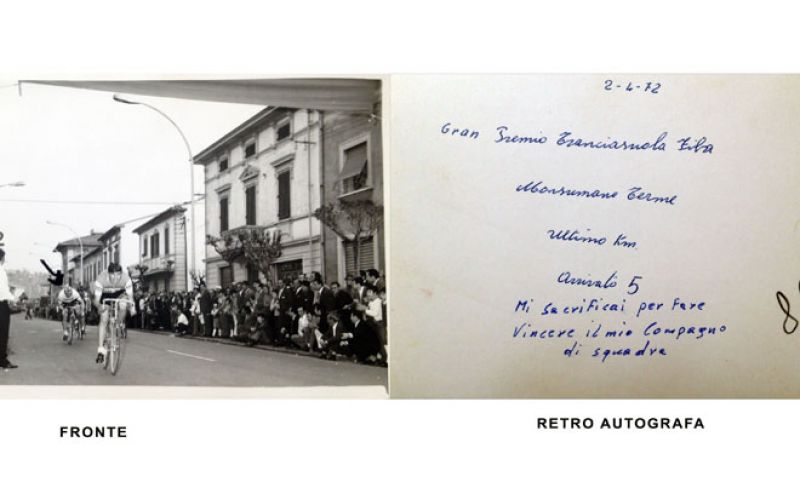 2-4-72
Gran Premio Tranciasuola Fiba
Monsumano Terme
Ultimo Km.
Arrivato 5
Mi sacrificai per fare
Vincere il mio Compagno
di squadra
8
FRONTE
RETRO AUTOGRAFA